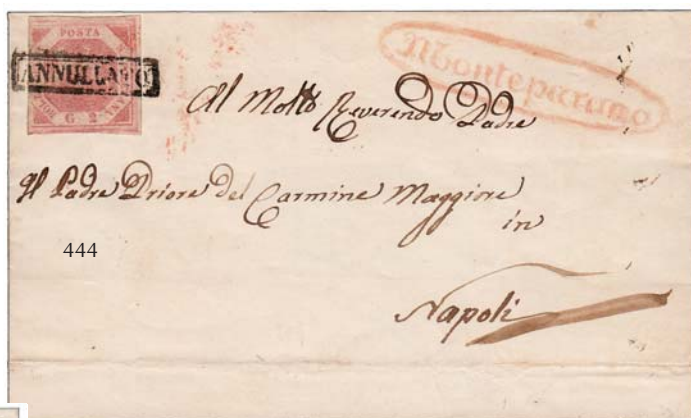 POSTA
ANNULLATO
G 2
Monteparano
Al Molto Reverendo Padre
Il Padre Priore del Carmine Maggiore
in
444
Napoli